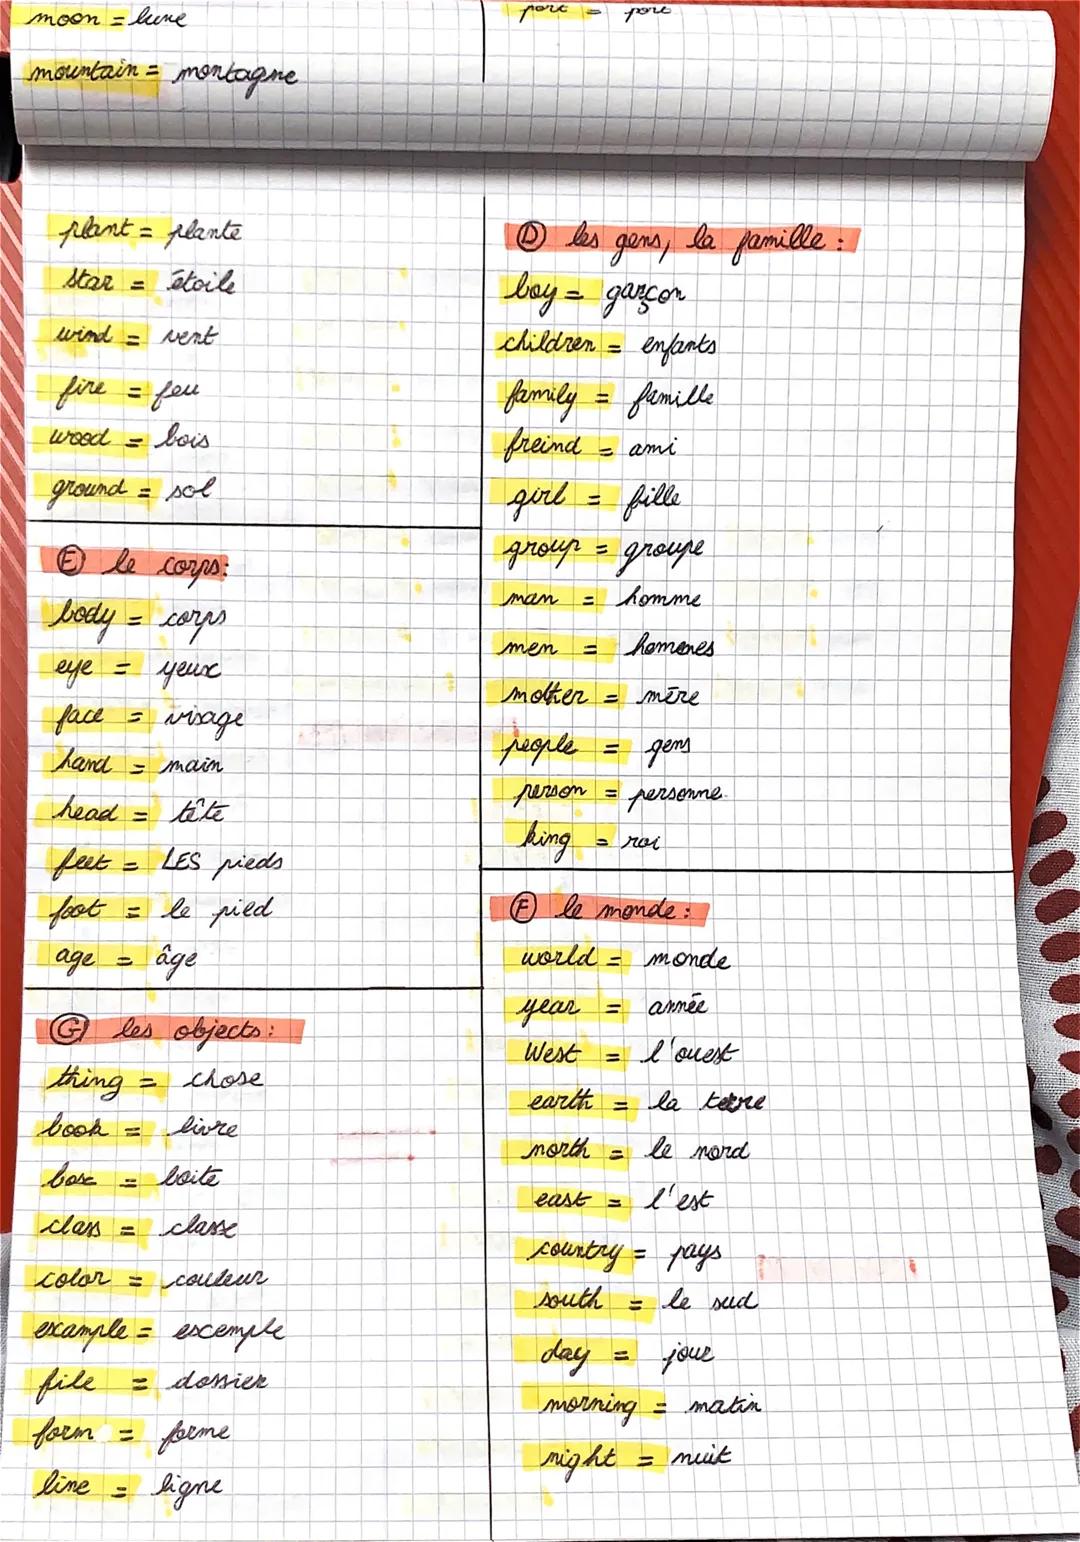 moon = lune
mountain = montagne
porc = porc
plant = plante
star = étoile
wind = vent
fire = feu
wood = bois
ground = sol
Ⓔ le corps:
body = corps
eye = yeux
face = visage
hand = main
head = tête
feet = LES pieds
foot = le pied
age = âge
Ⓖ les objects:
thing = chose
book = livre
box = boite
class = classe
color = couleur
example = exemple
file = dossier
form = forme
line = ligne
Ⓓ les gens, la famille:
boy = garçon
children = enfants
family = famille
freind = ami
girl = fille
group = groupe
man = homme
men = hommes
mother = mère
people = gens
person = personne
king = roi
Ⓕ le monde:
world = monde
year = année
West = l'ouest
earth = la terre
north = le nord
east = l'est
country = pays
south = le sud
day = jour
morning = matin
night = nuit